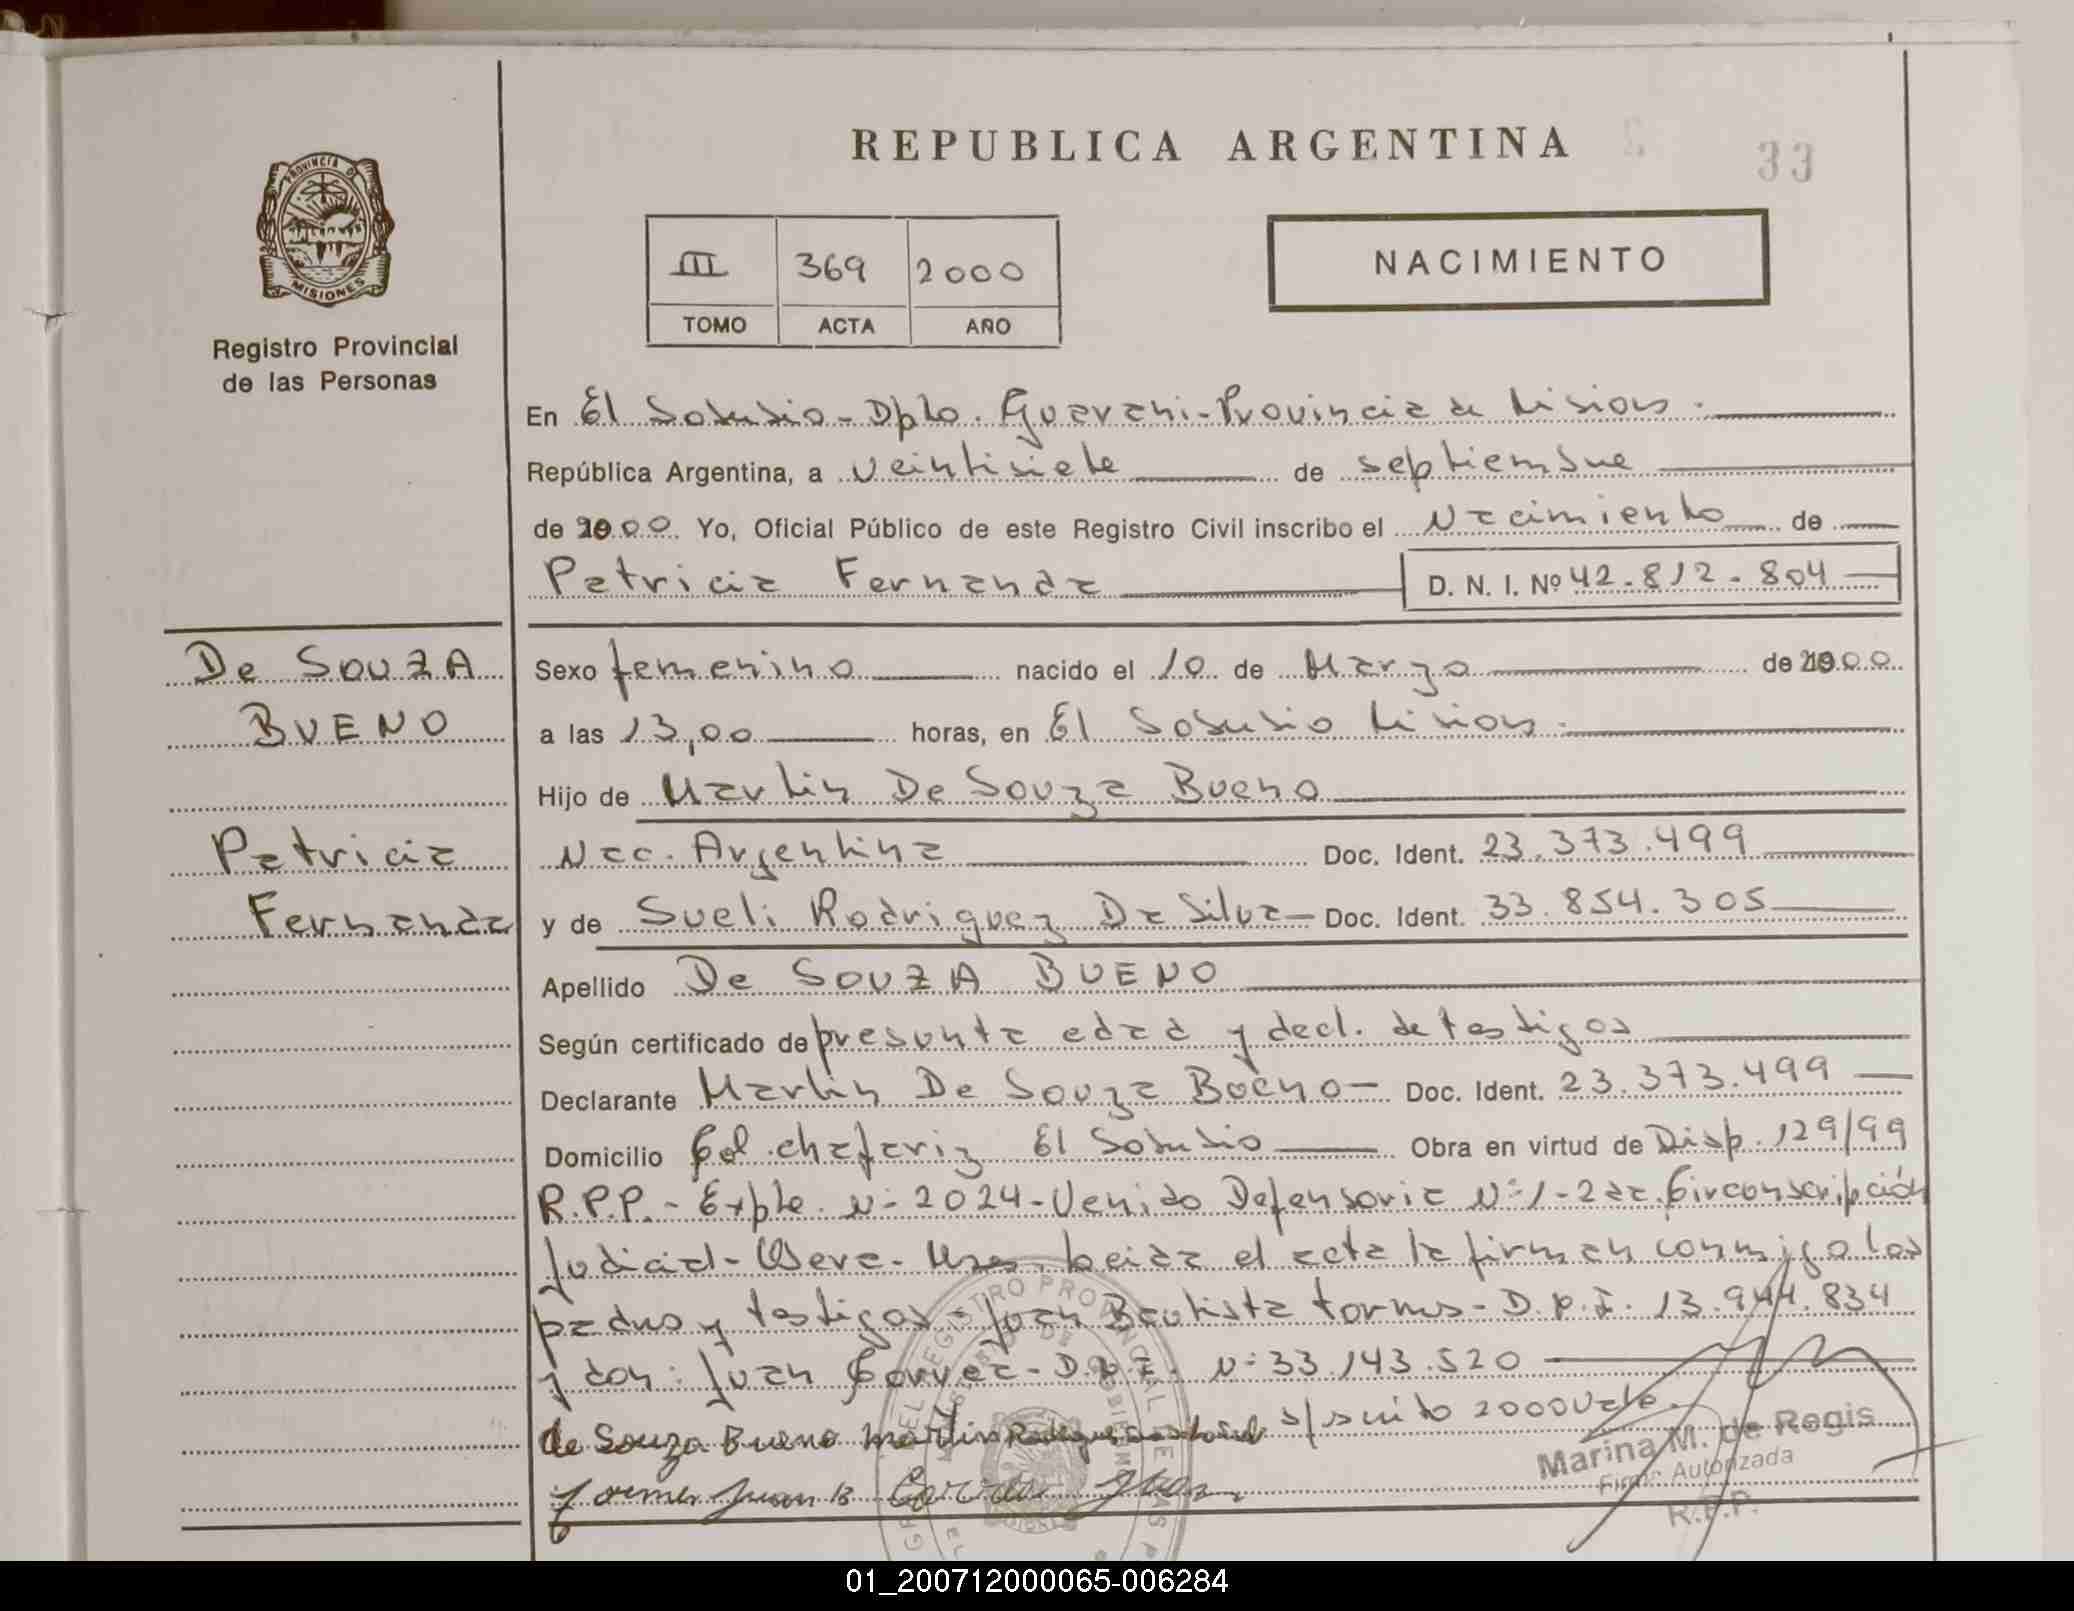 REPUBLICA ARGENTINA
33
PROVINCIA DE
MISIONES
Registro Provincial
de las Personas
III 369 2000
TOMO ACTA AÑO
NACIMIENTO
En El Soberbio - Dpto. Guarani - Provincia de Misiones.
República Argentina, a veintisiete de septiembre
de 2000 Yo, Oficial Público de este Registro Civil inscribo el Nacimiento de
Patricia Fernanda D. N. I. Nº 42.812.804
De SOUZA
BUENO
Patricia
Fernanda
Sexo femenino nacido el 10 de Marzo de 2000
a las 13,00 horas, en El Soberbio Misiones.
Hijo de Martin De Souza Bueno
Nac. Argentina Doc. Ident. 23.373.499
y de Sueli Rodriguez Da Silva Doc. Ident. 33.854.305
Apellido De SOUZA BUENO
Según certificado de presunta edad y decl. de testigos
Declarante Martin De Souza Bueno Doc. Ident. 23.373.499
Domicilio Col. chafariz El Soberbio Obra en virtud de Disp. 129/99
R.P.P. - Expte. Nº 2024 - Venido Defensoria Nº 1 - 2da. Circonscripción
Judicial - Obera - Mnes. Leida el acta la firman conmigo los
padres y testigos - Juan Bautista Torres - D.N.I. 13.944.834
y don: Juan Correa - D.N.I. Nº 33.143.520
de Souza Bueno Martin s/ scrito 2000 Vale.
Juan B
Marina M. de Regis
Firma Autorizada
R.P.P.
01_200712000065-006284